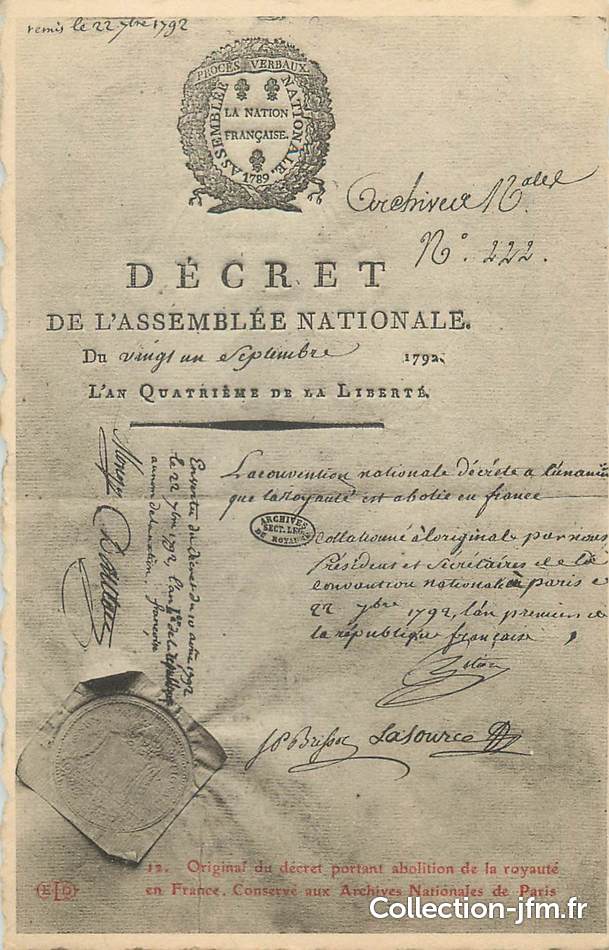 remis le 22 7bre 1792
PROCÈS VERBAUX
ASSEMBLÉE NATIONALE.
LA NATION
FRANÇAISE.
1789
Archives Nales
N°. 222.
DÉCRET
DE L'ASSEMBLÉE NATIONALE.
Du vingt un Septembre 1792.
L'AN QUATRIÈME DE LA LIBERTÉ.
La convention nationale décrète a l'unanim
que la royauté est abolie en france
ARCHIVES
SECT. LEG.
DU ROYAU
Collationné à l'original par nous
Président et Secrétaires de la
Convention nationale à paris ce
22 7bre 1792, l'an premier de
la république française
J P Brissot Lasource
En vertu du décret du 10 août 1792
le 22 7bre 1792, l'an 1er de la république
au nom de la nation, françoise
Monge Danton
12. Original du décret portant abolition de la royauté
en France. Conservé aux Archives Nationales de Paris
ELD
Collection-jfm.fr